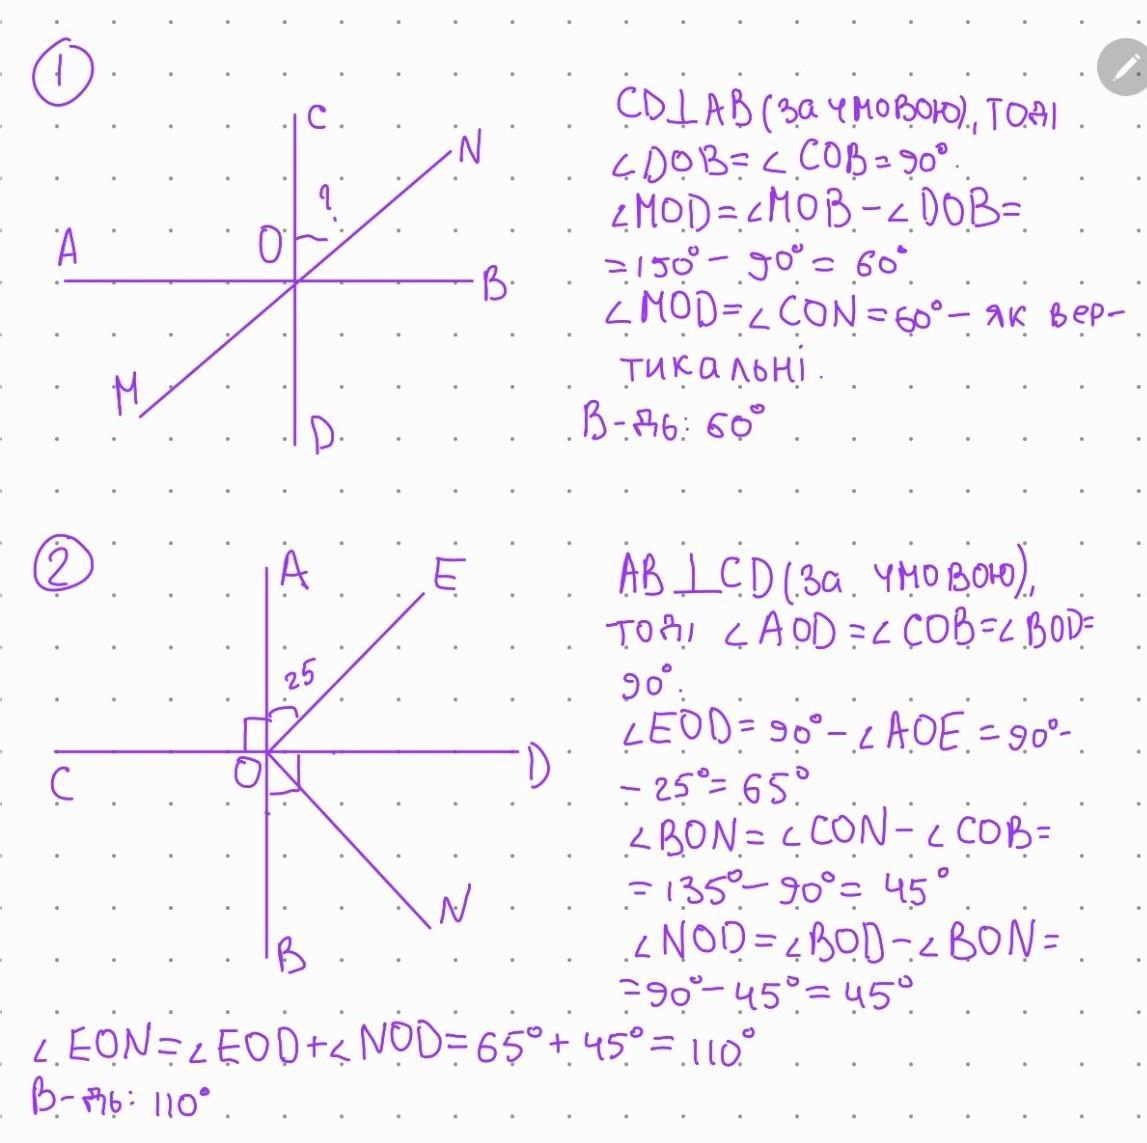 1
C
N
?
O
A
B
M
D
CD⊥AB (за умовою), тоді
∠DOB=∠COB=90°.
∠MOD=∠MOB-∠DOB=
=150°-90°=60°
∠MOD=∠CON=60°-як вер-
тикальні.
В-дь: 60°
2
A
E
25
C
O
D
N
B
AB⊥CD (за умовою),
тоді ∠AOD=∠COB=∠BOD=
90°.
∠EOD=90°-∠AOE=90°-
-25°=65°
∠BON=∠CON-∠COB=
=135°-90°=45°
∠NOD=∠BOD-∠BON=
=90°-45°=45°
∠EON=∠EOD+∠NOD=65°+45°=110°
В-дь: 110°